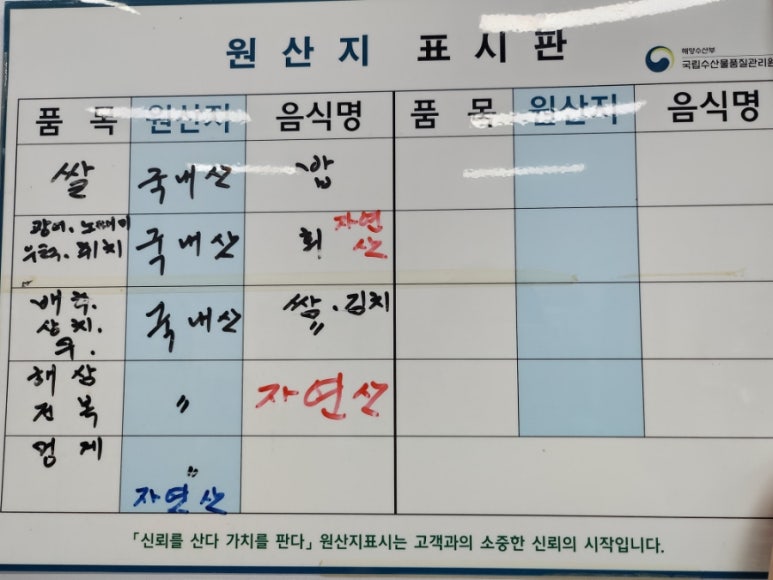 원산지 표시판
해양수산부
국립수산물품질관리원
품목 원산지 음식명 품목 원산지 음식명
쌀 국내산 밥
광어. 노래미
우럭. 쥐치 국내산 회 자연산
배추.
상치.
무. 국내산 쌈. 김치
〃
해삼
전복 〃 자연산
멍게 〃
자연산
「신뢰를 산다 가치를 판다」 원산지표시는 고객과의 소중한 신뢰의 시작입니다.